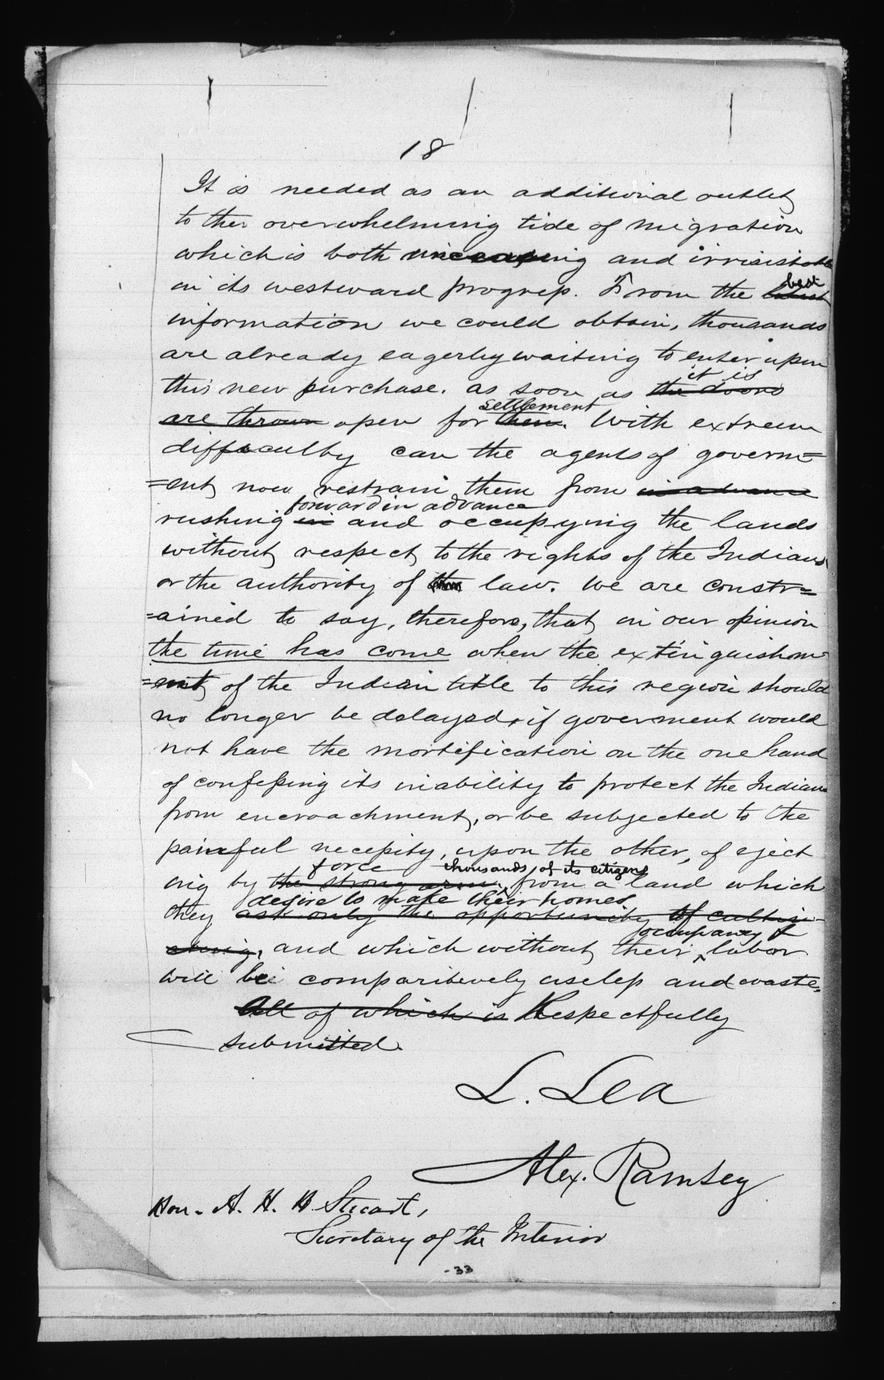 18
It is needed as an additional outlet
to ther overwhelming tide of migration
which is both unceasing and irrisistable
in its westward progress. From the latest best
information we could obtain, thousands
are already eagerly waiting to enter upon
this new purchase. as soon as the doors it is
are thrown open for them settlement. With extreme
difficulty can the agents of governm=
=ent now restrain them from in advance
rushing in forward in advance and occupying the lands
without respect to the rights of the Indians
or the authority of law. We are constr=
=ained to say, therefore, that in our opinion
the time has come when the extinguishm
=ent of the Indian title to this region should
no longer be delayed, if goverment would
not have the mortification on the one hand
of confessing its inability to protect the Indians
from encroachment, or be subjected to the
painful necessity, upon the other, of eject
ing by the strong arm, force thousands of its citizens from a land which
they ask only the opportunity of cultiv- desire to make their homes
ating, and which without their occupancy & labor
will be comparitively useless and waste.
All of which is Respectfully
submitted.
L. Lea
Alex. Ramsey
Hon. A. H. H Stuart,
Secretary of the Interior
-33